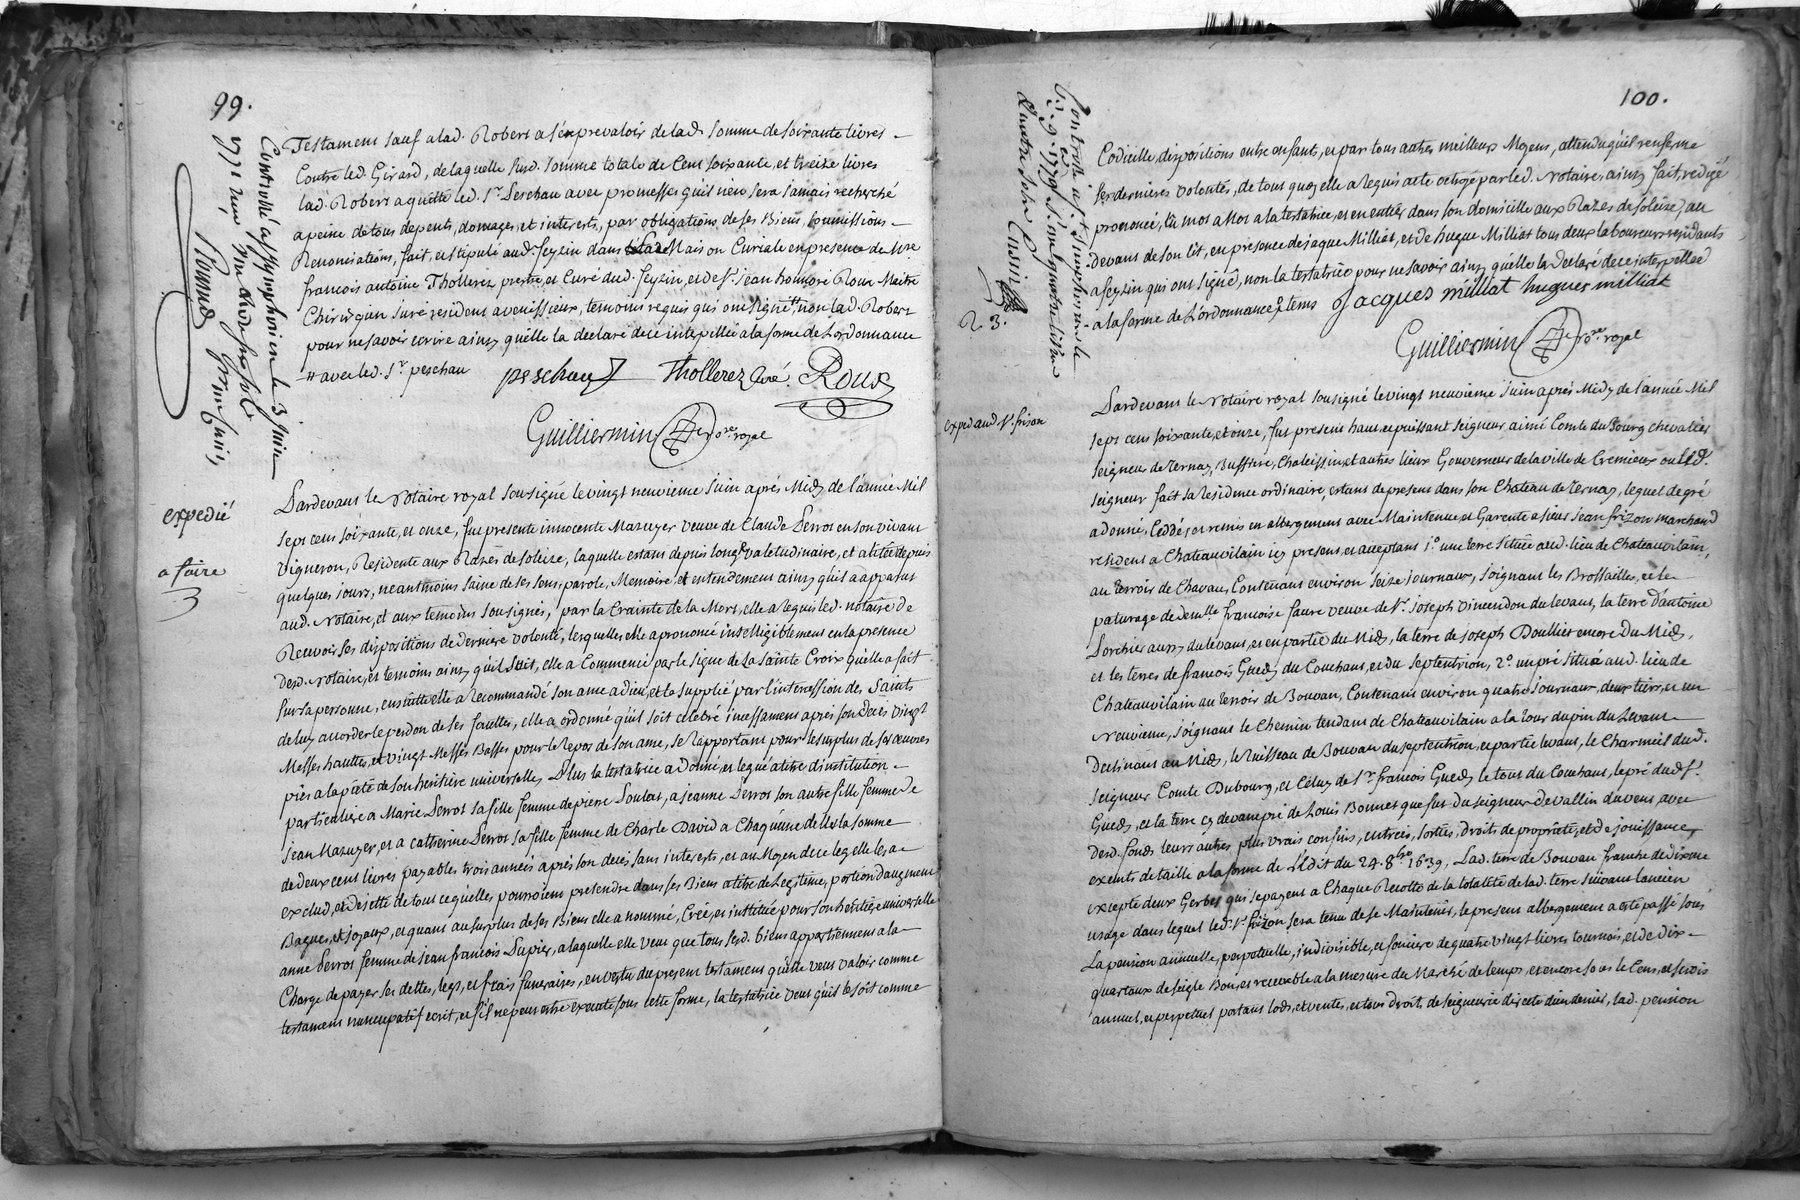 99.
Testament sauf a lad. Robert a s'en prevaloir de lad. somme de soixante livres
Contre led. Girard, de laquelle susd. somme totale de Cent soixante, et treize livres
lad. Robert a quitté led. Sr. Peschau avec promesses quil n'en sera jamais recherché
a peine de tous depents, domages, et interets, par obligations de ses Biens soumissions
Renonciations, fait, et stipulé aud. feyzin dans la Maison Curiale en presence de Mre
francois antoine Thollerez prestre, et Curé dud. feyzin, et de Sr. jean honnoré Roux Maitre
Chirurgien juré resident a venissieux, temoins requis qui ont signé # non lad. Robert
pour ne savoir ecrire ainsy qu'elle la declaré de ce interpellée a la forme de L'ordonnance
# avec led. Sr. peschau
peschau Thollerez Curé. Roux
Guilliermin No.re royal
Controllé a st symphorien le 3 juin
1771
expedié
a faire
3
Pardevant le Notaire royal sousigné le vingt neuvieme juin aprés Midy de l'année Mil
sept cent soixante, et onze, fut presente innocente Mazuyer veuve de Claude Perrot en son vivant
vigneron, Residente aux Razes de soleize, laquelle estant depuis longt valetudinaire, et alitée depuis
quelques jours, neantmoins saine de ses sens, parole, Memoire, et entendement ainsy qu'il a apparut
aud. Notaire, et aux temoins sousignés, par la Crainte de la Mort, elle a requis led. notaire de
Recevoir ses dispositions de derniere volonté, lesquelles elle a prononcé intelligiblement en la presence
desd. Notaire, et temoins ainsy qu'il suit, elle a Commencé par le signe de la Sainte Croix qu'elle a fait
sur sa personne, ensuitte elle a recommandé son ame a dieu, et la supplié par l'intercession des Saints
de luy accorder le perdon de ses fauttes, elle a ordonné quil soit celebré incessament aprés son deces vingt
Messes hauttes, et vingt Messes Basses pour le repos de son ame, se rapportant pour le surplus de ses oeuvres
pies a la pieté de son heritiere universelle, Plus la testatrice a donné, et legué a titre d'institution
particuliere a Marie Perrot sa fille femme de pierre Soulas, a jeanne Perrot son autre fille femme de
jean Mazuyer, et a catherine Perrot sa fille femme de Charle David a Chaqu'une d'elle la somme
de deux cent livres payables trois années aprés son deces sans interests, et au Moyen de ce leg elle les a
exclud, et dejetté de tout ce qu'elles pourroient pretendre dans ses Biens a titre de Legitime, portion d'augment
Bagues, et joyaux, et quant au surplus de ses Biens elle a nommé, Créé, et instituée pour son heritiere universelle
anne Perrot femme de jean francois Dupier, a laquelle elle veut que tous sesd. biens appartiennent a la
Charge de payer ses dettes, legs, et frais funeraires, en vertu du present testament qu'elle veut valoir comme
testament nuncupatif ecrit, et s'il ne peut estre executé sous cette forme, la testatrice veut qu'il le soit comme
100.
Codicille, dispositions entre enfants, et par tous autres meilleurs Moyens, attendu qu'il renferme
ses dernieres volontés, de tout quoy elle a requis acte octroyé par led. Notaire, ainsy fait, redigé
prononcé, lû mot a Mot a la testatrice, et en entier dans son domicille aux Razes de soleize, au
devant de son lit, en presence de jaque Milliat, et de hugue Milliat tous deux laboureurs residants
a feyzin qui ont signé, non la testatrice pour ne savoir ainsy qu'elle la declaré de ce interpellée
a la forme de L'ordonnance
Jacques millat hugues milliat
Guilliermin No.re royal
23.
exped. aud. Sr. frizon
Pardevant le Notaire royal sousigné le vingt neuvieme juin aprés Midy de l'année Mil
sept cent soixante, et onze, fut present haut, et puissant seigneur aimé Comte du Bourg chevallier
seigneur de Ternay, Bussiere, Chaleissin, et autres lieux Gouverneur de la ville de Cremieux ou led.
seigneur fait sa residence ordinaire, estant de present dans son Chateau de Ternay, lequel de gré
a donné, Ceddé, et remis en albergement avec Maintenue, et Garentie a sieur jean frizon marchand
resident a Chateauvilain icy present, et acceptant 1.º une terre située aud. lieu de Chateauvilain,
au terroir de Chavau, Contenant environ seize journaux, joignant les Brossailles, et le
paturage de demlle. francoise faure veuve de Sr. joseph vincendon du levant, la terre d'antoine
Lorchier aussy du levant, et en partie du Midy, la terre de joseph Doullier encore du Midy,
et les terres de francois Guedy du Couchant, et du septentrion, 2.º un pré situé aud. lieu de
Chateauvilain au terroir de Bouvan, Contenant environ quatre journaux, deux tiers, et un
neuvieme, joignant le Chemin tendant de Chateauvilain a la Tour du pin du Levant
declinant au Midy, le Ruisseau de Bouvan du septentrion, et partie levant, le Charmeil dud.
seigneur Comte Dubourg, et Celuy de Sr. francois Guedy le tout du Couchant, le pré dud. Sr.
Guedy, et la terre cy devant pré de Louis Bonnet que fut du seigneur de vallin du vent, avec
desd. fonds leurs autres plus vrais confins, entrées, sorties, droits de proprieté, et de jouissance,
exempts de taille a la forme de l'Edit du 24. 8bre 1639. Lad. terre de Bouvan franche de dixme
excepté deux Gerbes qui se payent a Chaque Recolte de la totallité de lad. terre suivant l'ancien
usage dans lequel led. Sr. frizon sera tenu de se Maintenir, le present albergement a esté passé sous
La pension annuelle, perpetuelle, indivisible, et fonciere de quatre vingt livres tournois, et de dix
quartaux de seigle Bon, et recevable a la mesure du Marché de temps, et encore sous le Cens, et servis
annuel, et perpetuel portant lods, et vente, et tous droit de seigneurie directe d'un denier, lad. pension